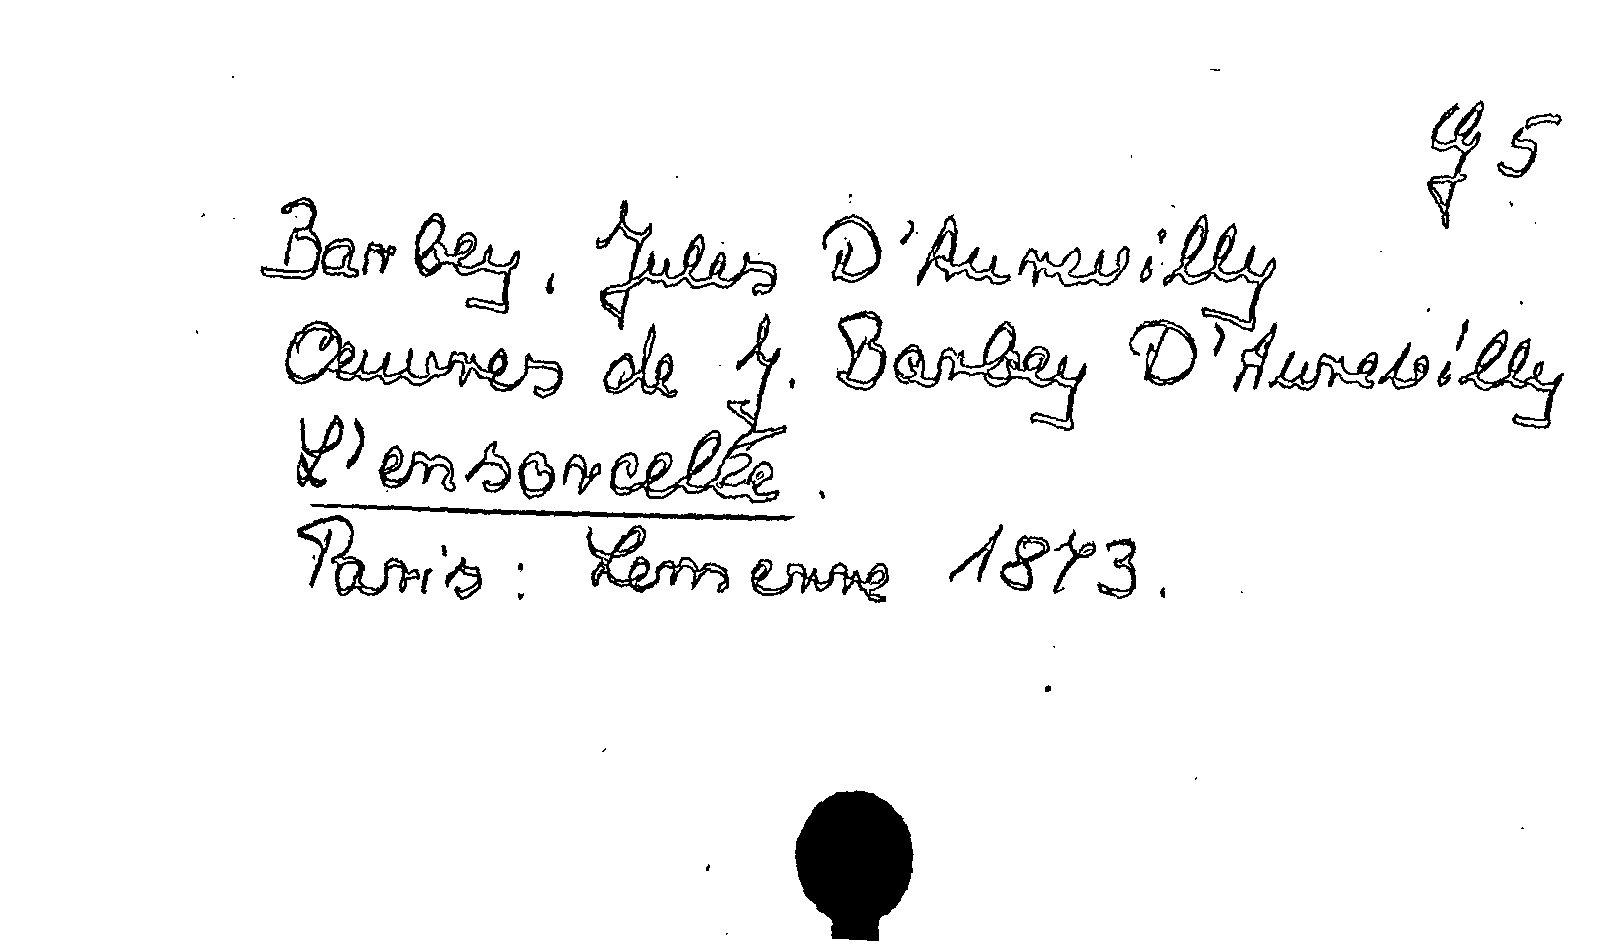 G 5
Barbey, Jules D'Aurevilly
Oeuvres de J. Barbey D'Aurevilly
L'ensorcelée.
Paris: Lemerre 1873.